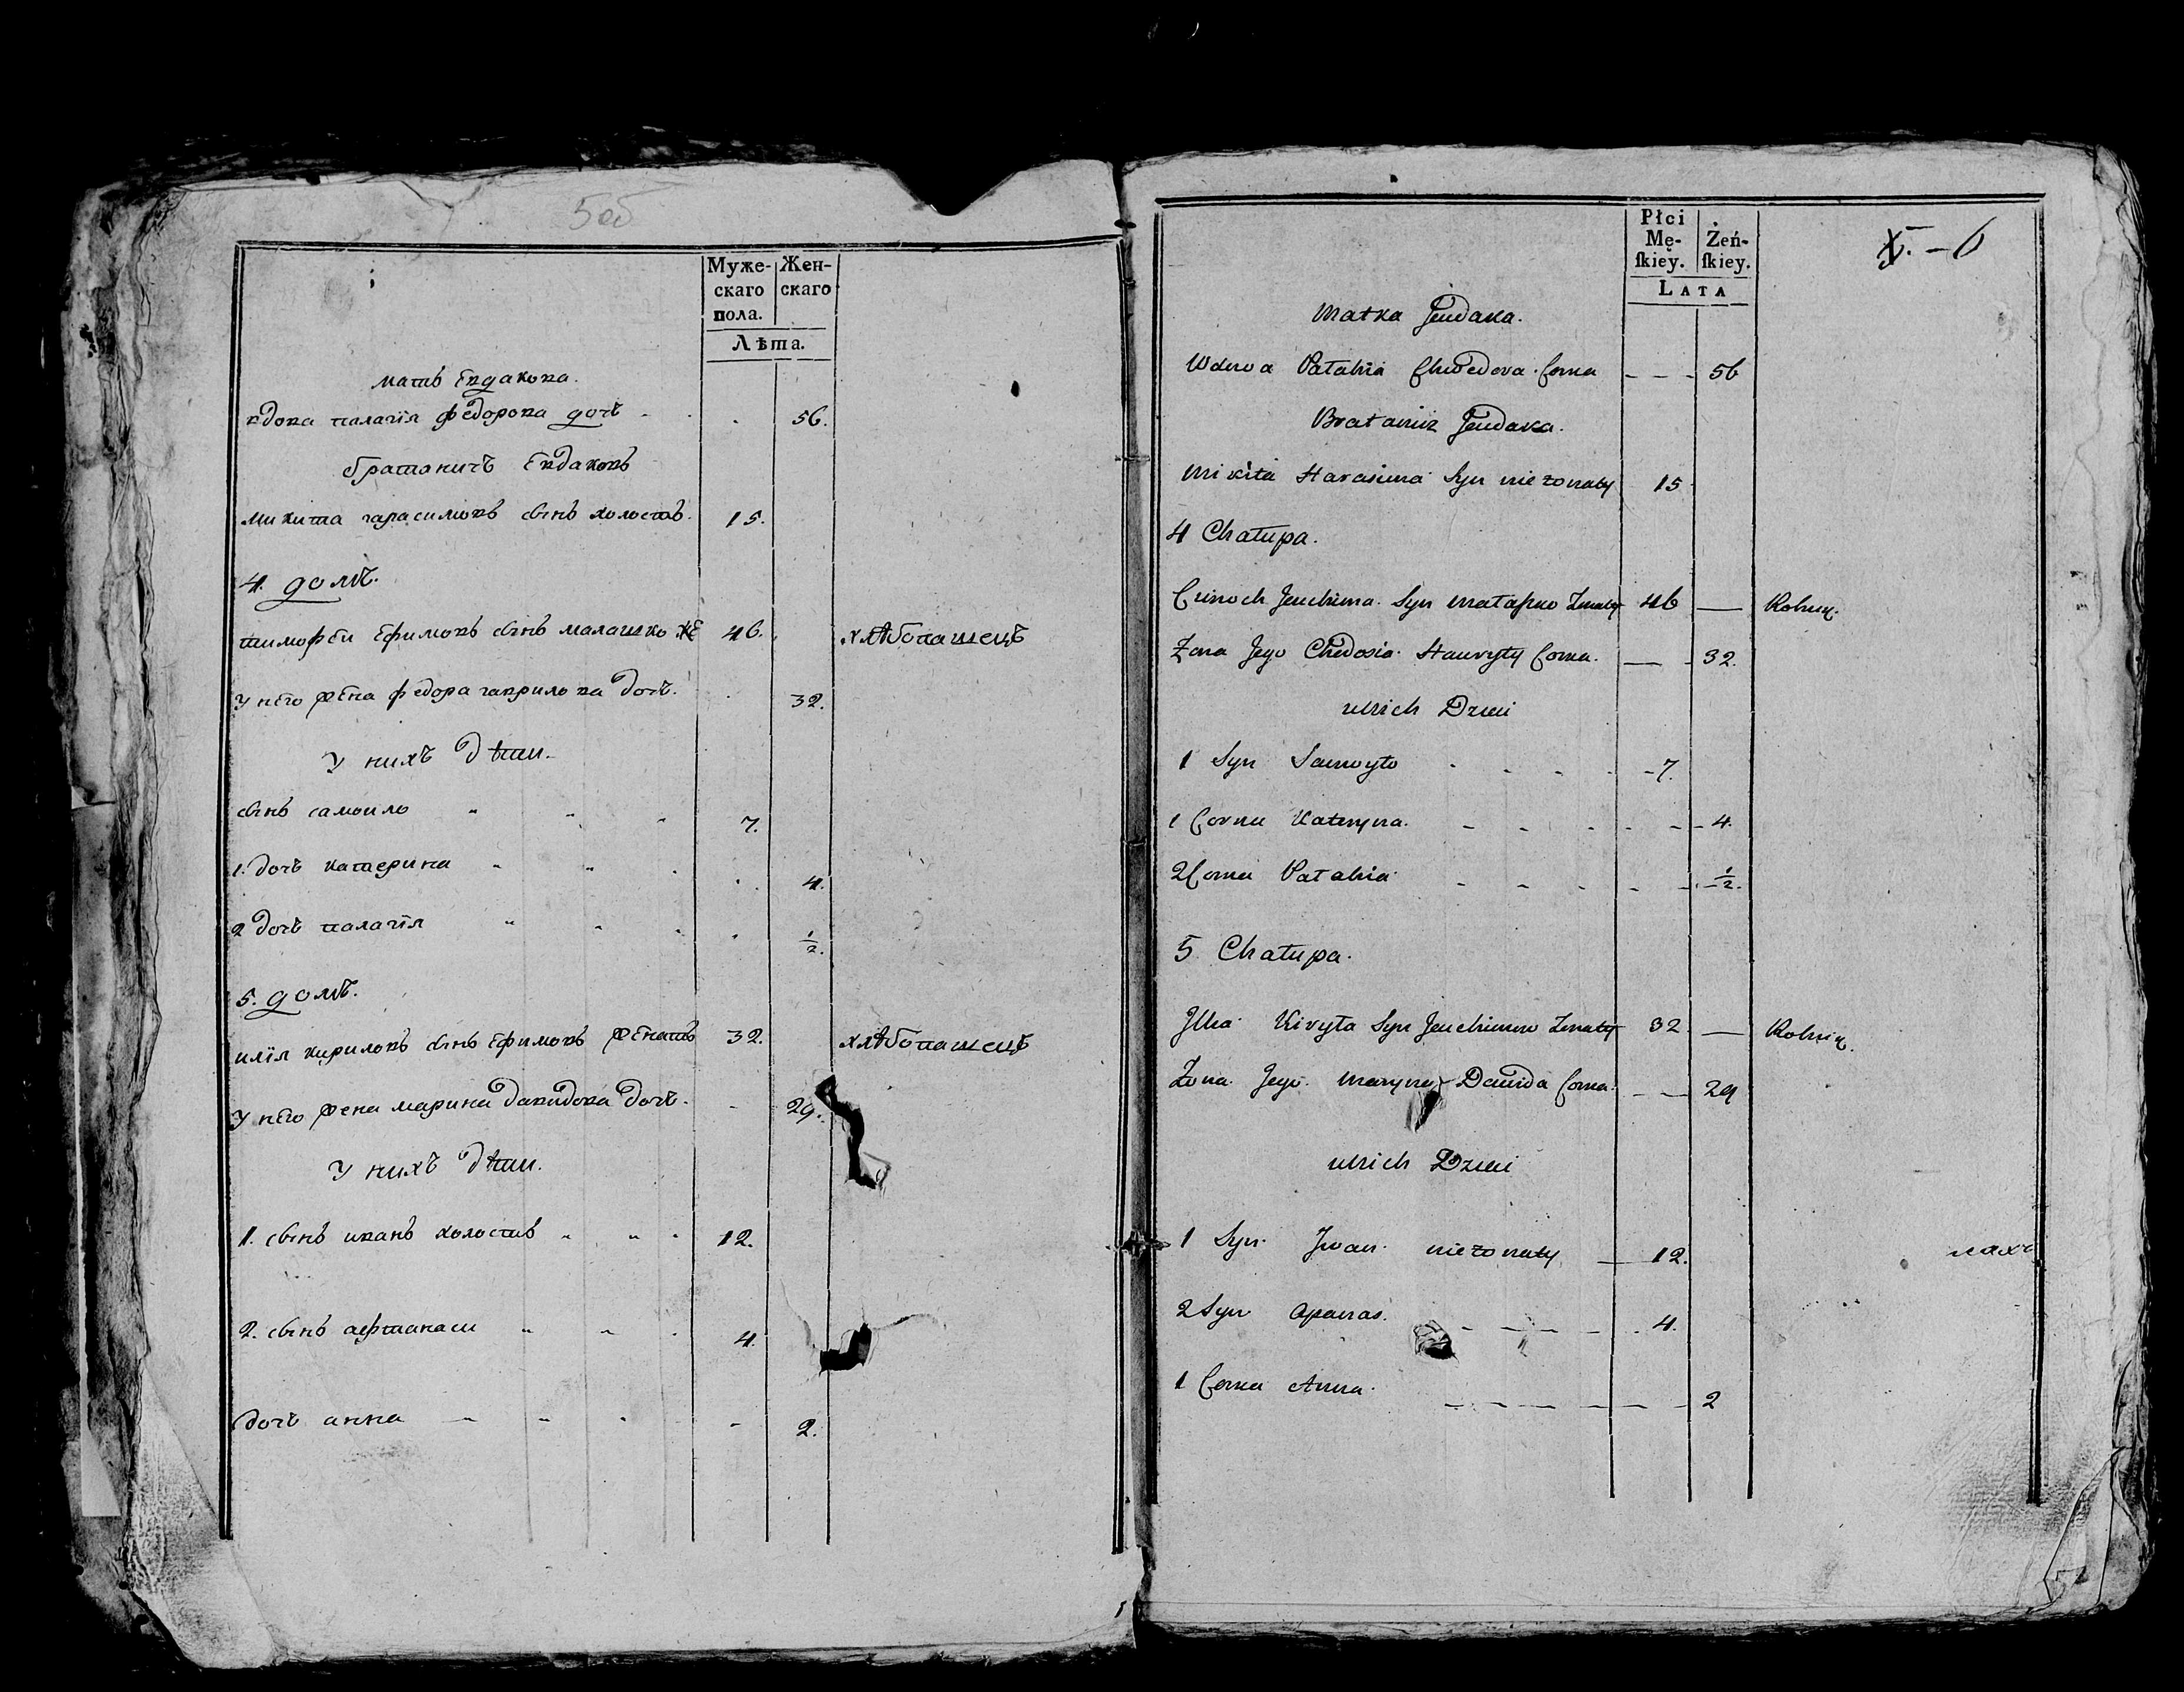 5 об
Муже-
скаго
пола.
Жен-
скаго
Лѣта.
мать Евдакова.
вдова палагія федорова дочъ 56.
братаничъ Евдаковъ
микита гарасимовъ сынъ холостъ. 15.
4. домъ.
тимофеи Ефимовъ сынъ малашко же 46. хлѣбопашецъ
У него жена федора гаврилова дочъ. 32.
У нихъ дѣти.
сынъ самоило 7.
1. дочъ катерина 4.
2 дочъ палагія ½.
5. домъ.
илія кириловъ сынъ Ефимовъ женатъ 32. хлѣбопашецъ
У него жена марина давидова дочъ. 29.
У нихъ дѣти.
1. сынъ иванъ холостъ 12.
2. сынъ афтанаси 4.
дочъ анна 2.
Płci
Mę-
ſkiey.
Żeń-
ſkiey.
LATA
Matka Jeudaka.
Wdowa Pałahia Chwedora Corka 56
Bratanicz Jeudaka.
Mikita Harasima Syn nieżonaty 15
4 Chałupa.
Cimoch Jeuchima Syn Małaszko Żonaty 46 Rolnik.
Żona Jego Chedosia Hauryły Corka. 32.
u nich Dzieci
1 Syn Samoyło 7.
1 Corka Kateryna. 4.
2 Corka Pałahia ½.
5 Chałupa.
Jlia Kiryła Syn Jeuchimow Żonaty 32 Rolnik.
Żona Jego Maryna Dawida Corka 29
u nich Dzieci
1 Syn Jwan nieżonaty 12.
2 Syn Apanas. 4.
1 Corka Anna. 2